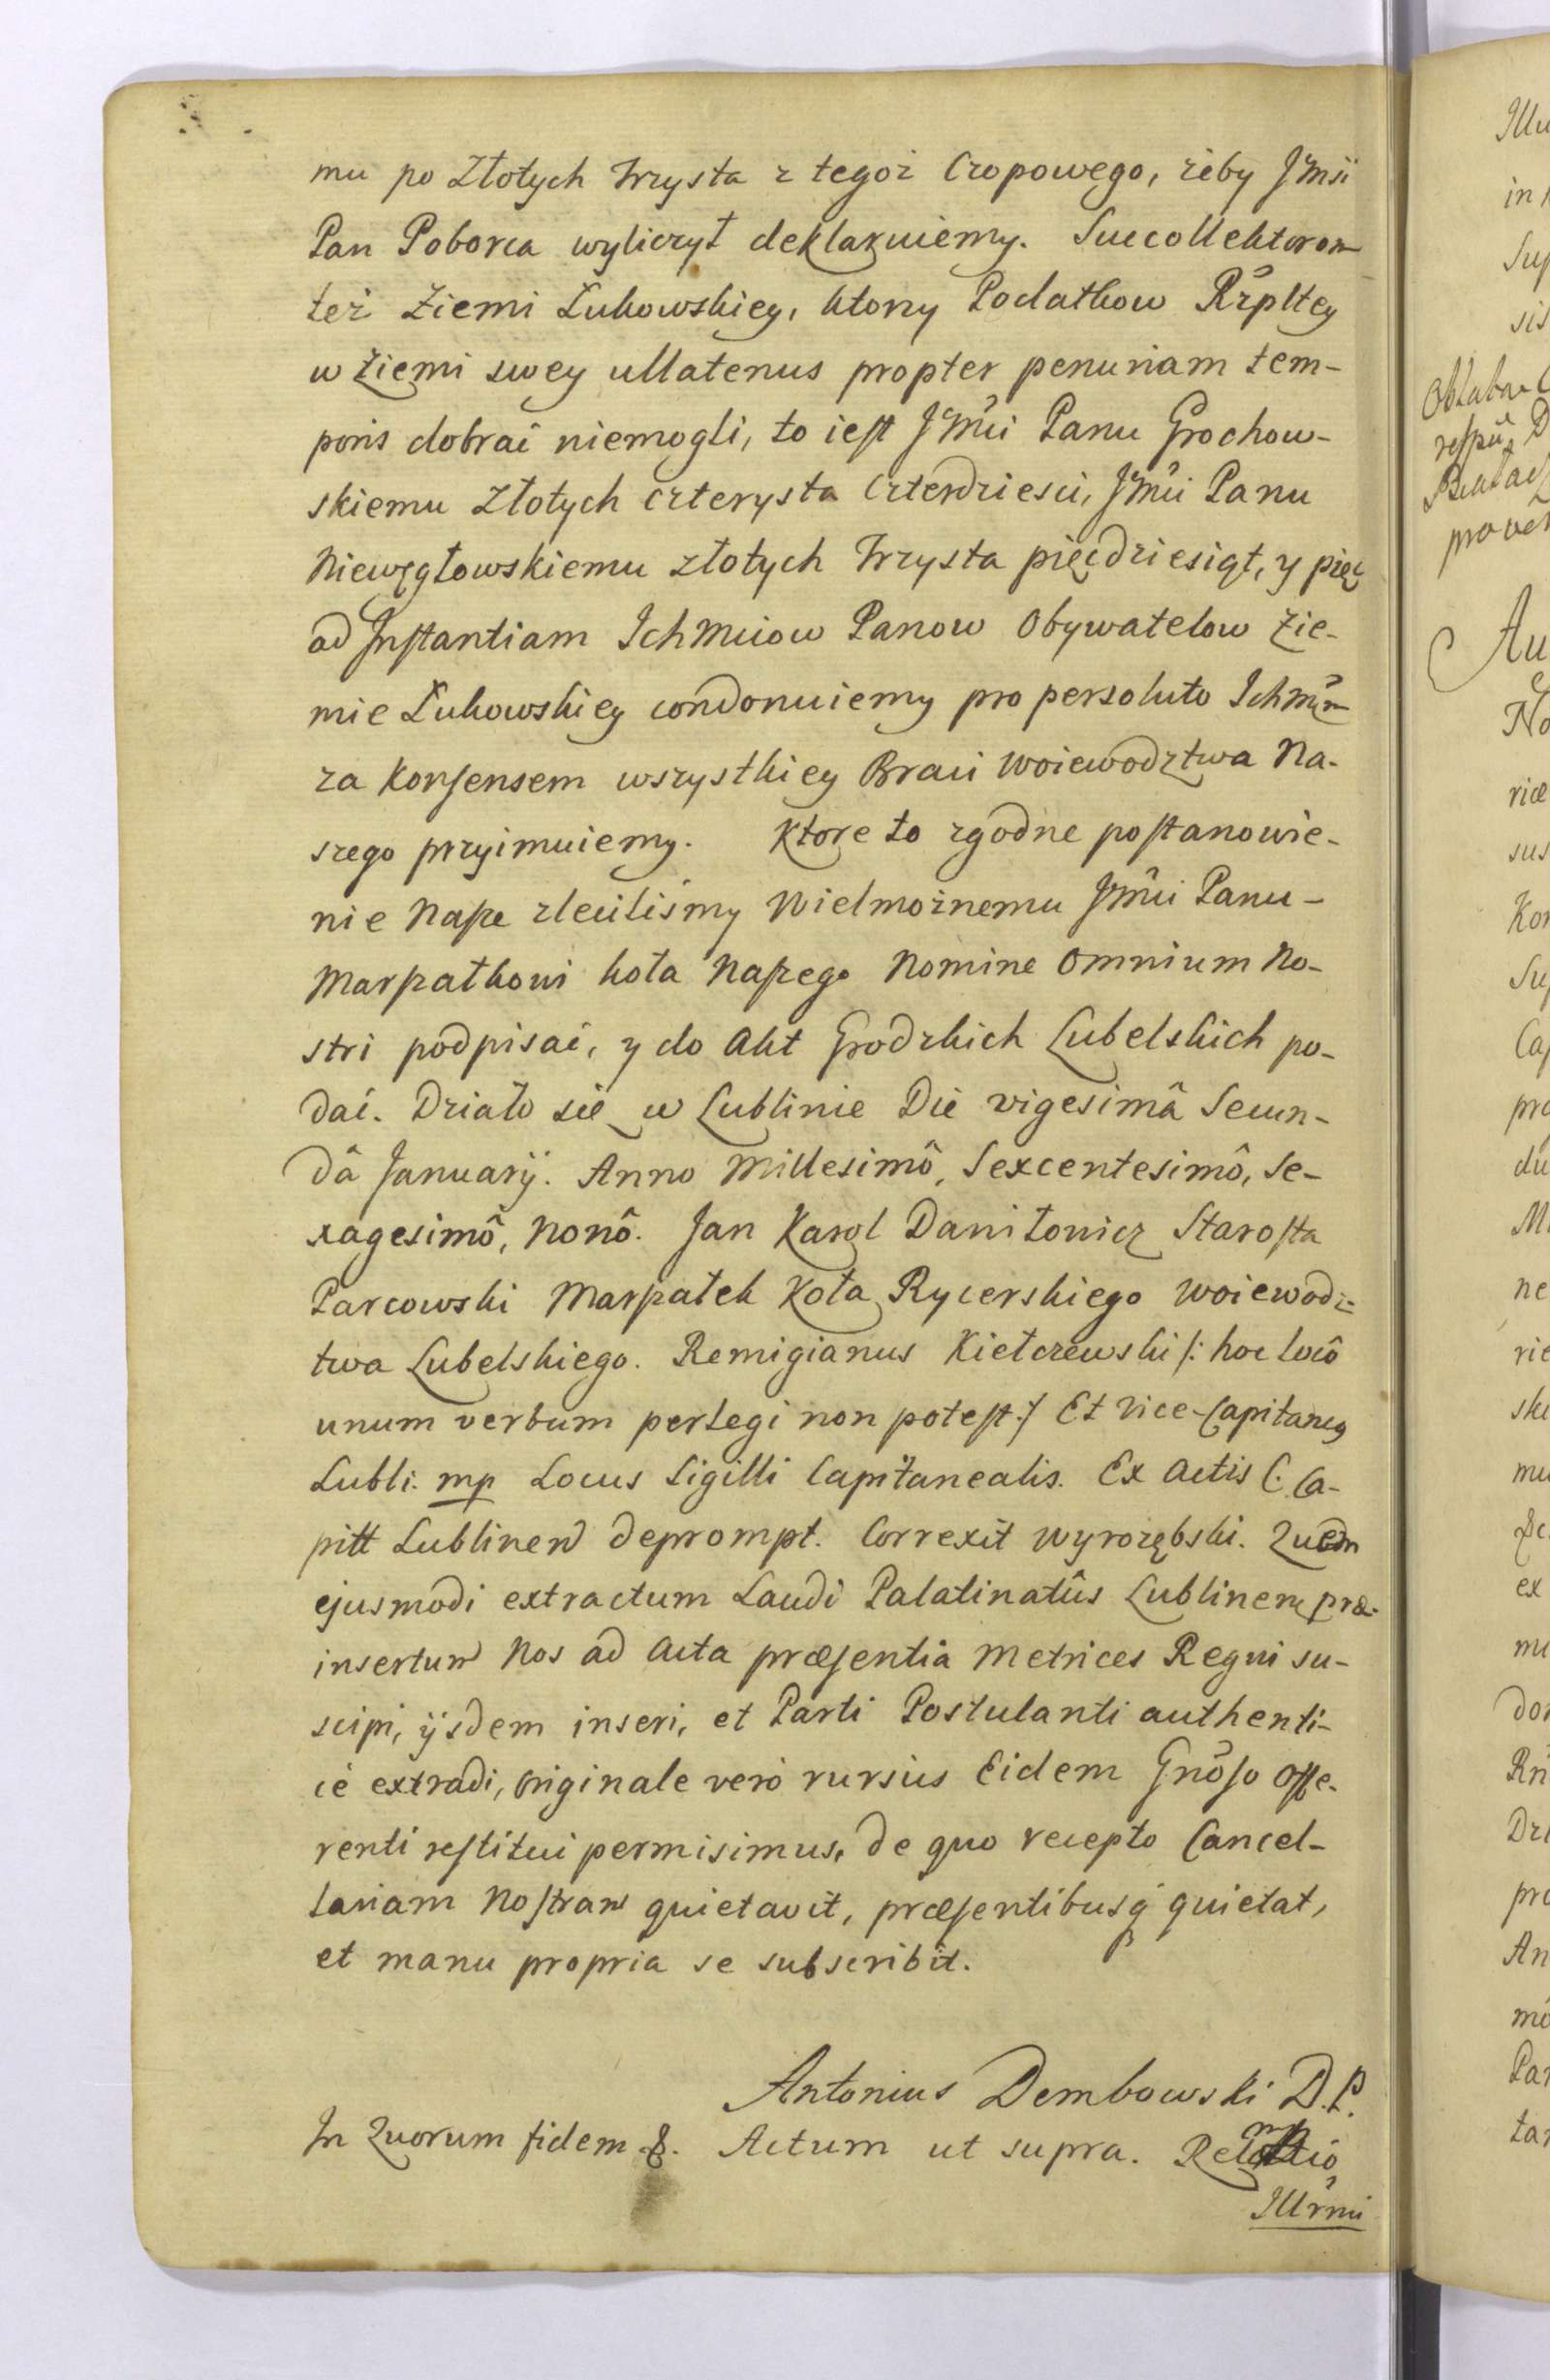 mu po Złotych Trzysta z tegoż Czopowego, żeby JMsci
Pan Poborca wyliczył deklaruiemy. Succollektorom
też Ziemi Łukowskiey, ktorzy Podatkow Rzpltey
w Ziemi swey ullatenus propter penuriam tem-
poris dobrać niemogli, to iest JMci Panu Grochow-
skiemu Złotych czterysta Czterdziesci, JMci Panu
Niewęgłowskiemu złotych Trzysta pięcdziesiąt, y pięc
ad Instantiam Ichmciow Panow Obywatelow Zie-
mie Łukowskiey condonuiemy pro persoluto Ichmm
za Konsensem wszystkiey Braci Woiewodztwa Na-
szego przyimuiemy. Ktore to zgodne postanowie-
nie Nasze zleciliśmy Wielmożnemu Jmci Panu
Marszałkowi koła Naszego Nomine Omnium No-
stri podpisać, y do Akt Grodzkich Lubelskich po-
dać. Działo się w Lublinie Die vigesimâ Secun-
dâ Januarij. Anno Millesimô, Sexcentesimô, Se-
xagesimô, Nonô. Jan Karol Daniłowicz Starosta
Parcowski Marszałek Koła Rycerskiego Woiewodz-
twa Lubelskiego. Remigianus Kiełczewski /: hoc locô
unum verbum perlegi non potest :/ Et Vice-Capitaneg
Lubli. mp Locus Sigilli Capitanealis. Ex Actis C. Ca-
pitt Lublinen deprompt. Correxit Wyrozębski. Quem
ejusmodi extractum Laudi Palatinatûs Lublinen præ-
insertum Nos ad Acta præsentia Metrices Regni su-
scipi, ijsdem inseri, et Parti Postulanti authenti-
cè extradi, Originale verò rursùs Eidem Gnoso Offe-
renti restitui permisimus, de quo recepto Cancel-
lariam Nostram quietavit, præsentibusq quietat,
et manu propria se subscribit.
Antonius Dembowski D.P.
mp
In Quorum fidem &. Actum ut supra. Relatio
Illrmi